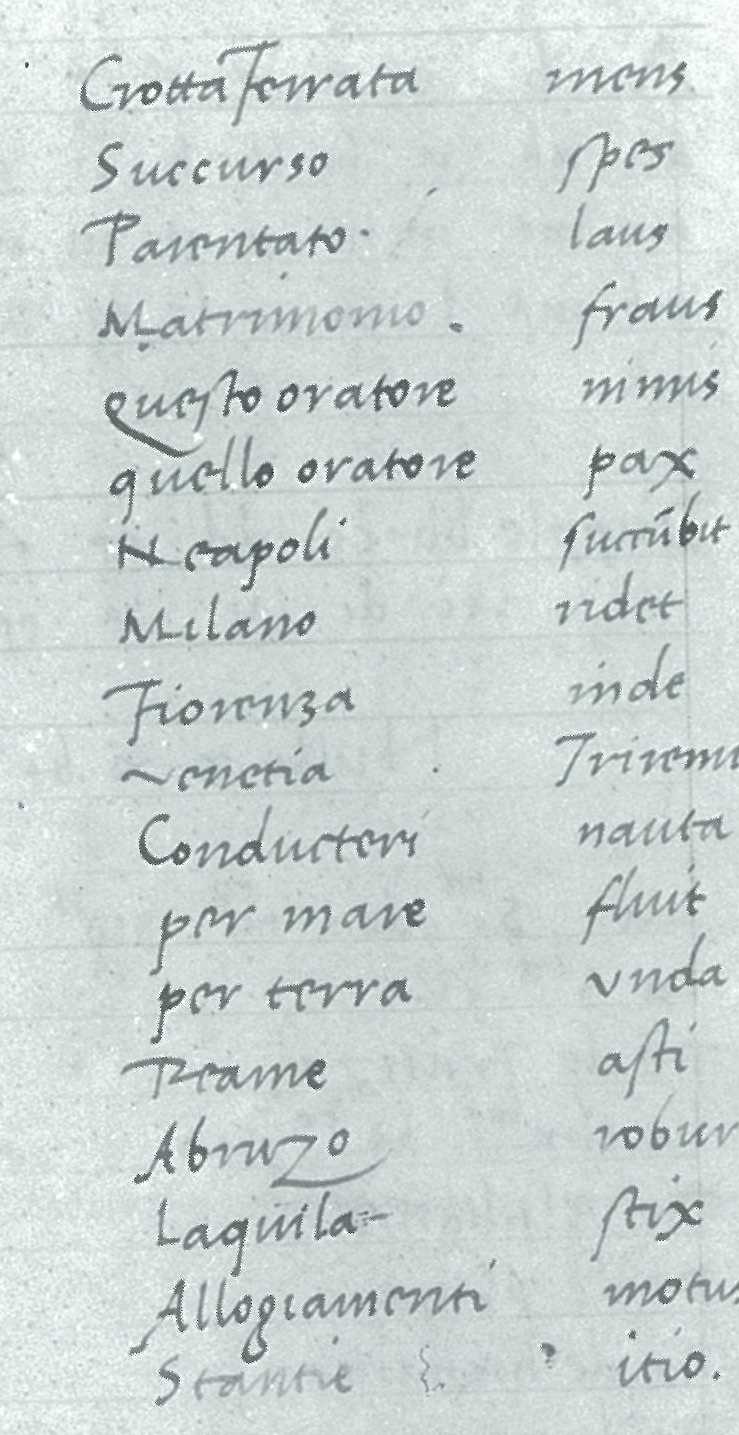 Crottaferrata mens
Succurso spes
Parentato. laus
Matrimonio. fraus
questo oratore nimis
quello oratore pax
Neapoli succūbit
Milano ridet
Fiorenza inde
Venetia Trirem
Conducteri nauta
per mare fluit
per terra vnda
Reame asti
Abruzo robur
Laquila stix
Allogiamenti motus
Stantie itio.